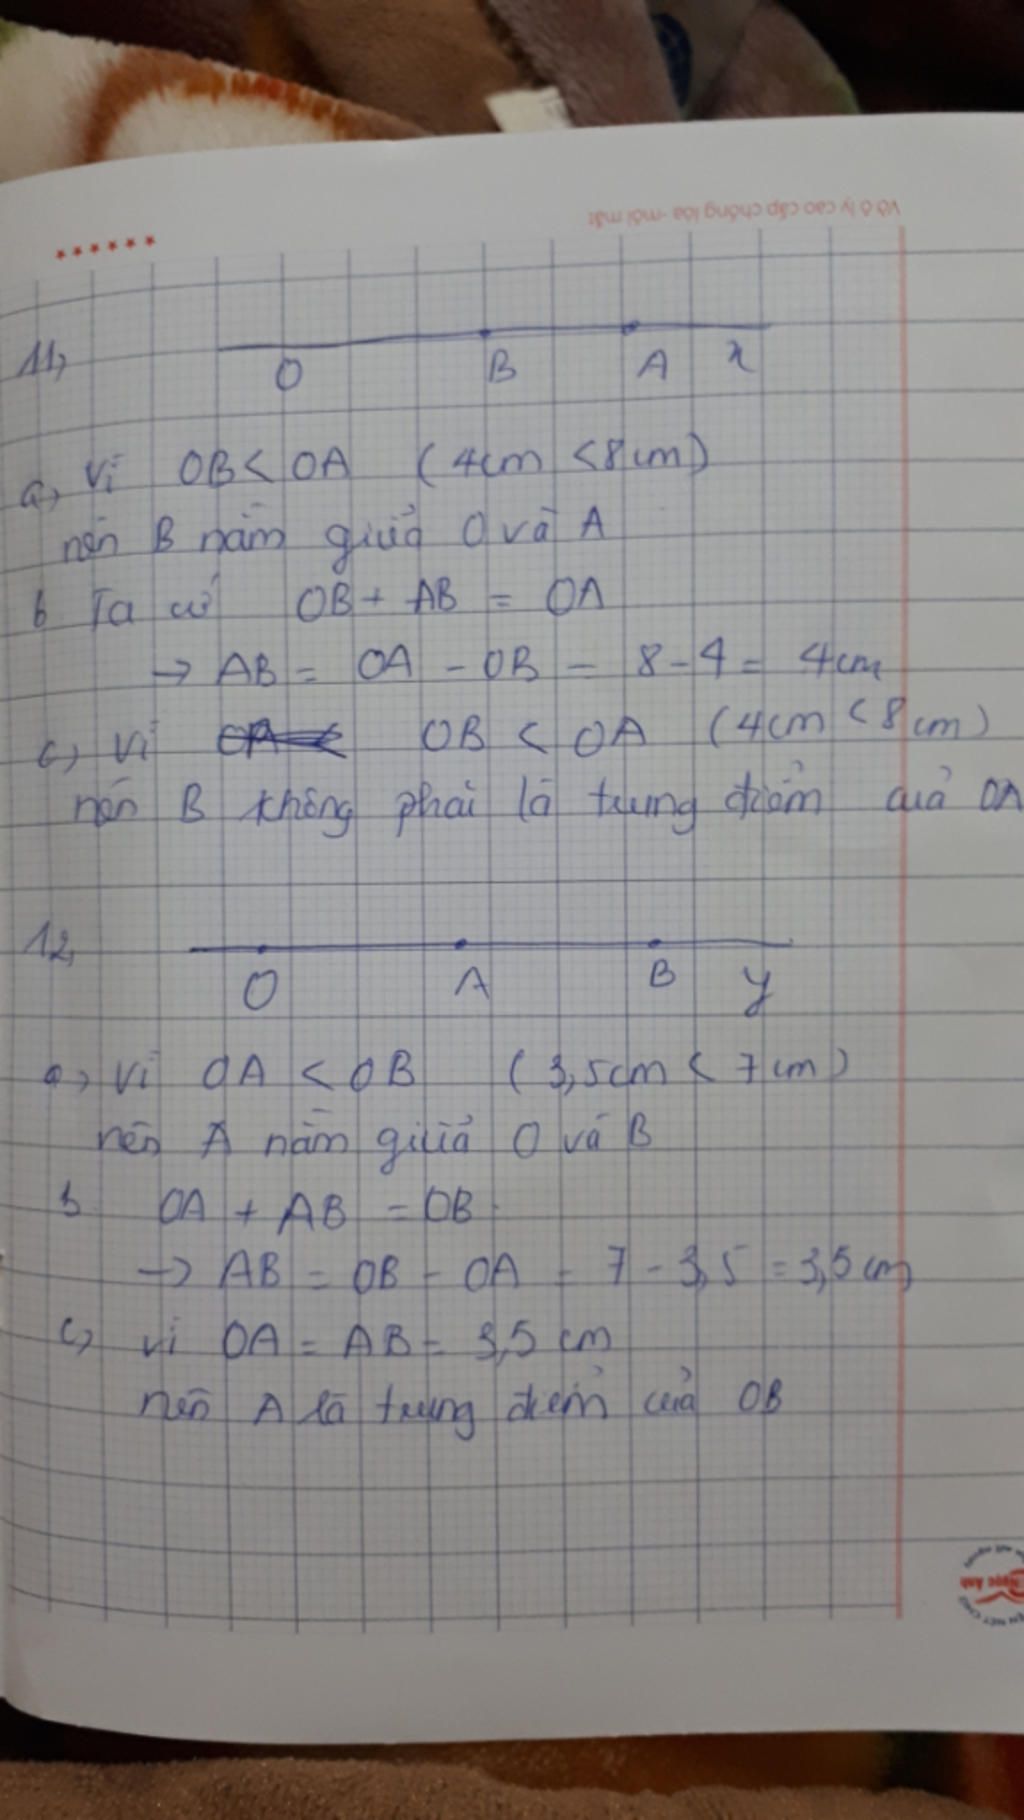 Vở ô ly cao cấp chống lóa - mỏi mắt
11,
O B A x
a, Vì OB < OA (4cm < 8cm)
nên B nằm giữa O và A
b Ta có OB + AB = OA
→ AB = OA - OB = 8 - 4 = 4cm
c, Vì OB < OA (4cm < 8cm)
nên B không phải là trung điểm của OA
12,
O A B y
a, Vì OA < OB (3,5cm < 7cm)
nên A nằm giữa O và B
b OA + AB = OB
→ AB = OB - OA = 7 - 3,5 = 3,5cm
c, vì OA = AB = 3,5 cm
nên A là trung điểm của OB
Ngọc Ánh